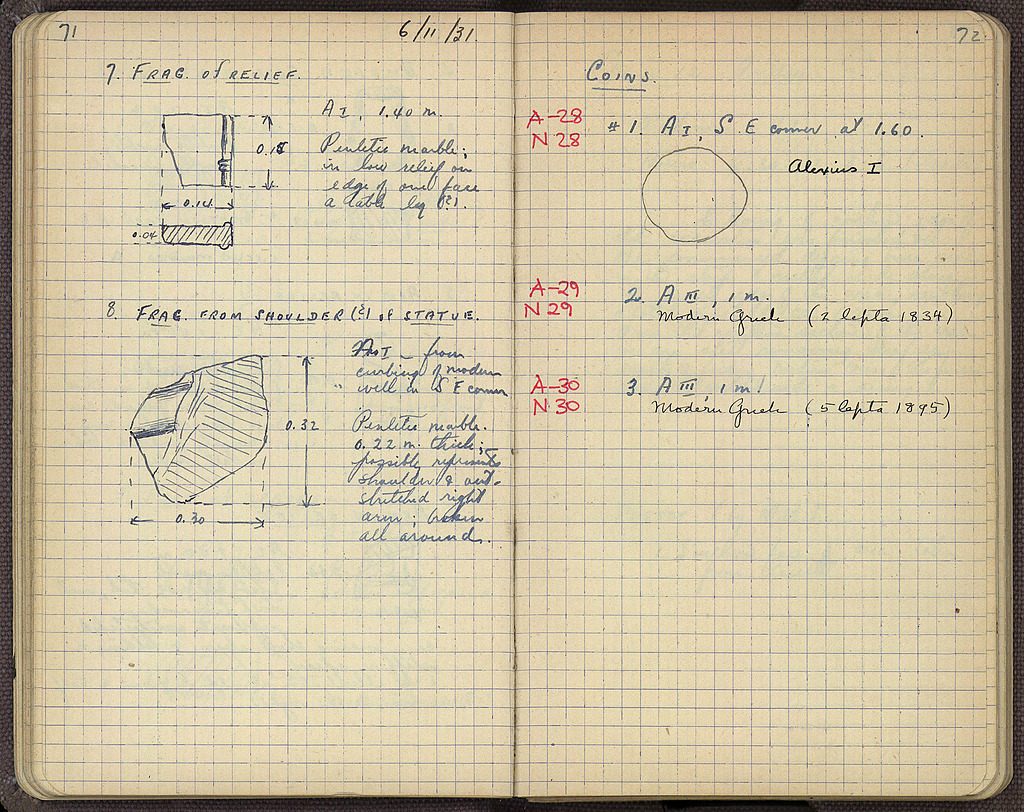 71
6/11/31.
7. FRAG. of RELIEF.
A I, 1.40 m.
Pentelic marble;
in low relief on
edge of one face
a table leg (?).
0.15
0.14
0.04
8. FRAG. FROM SHOULDER (?) of STATUE.
A I – from
curbing of modern
well in S E corner
Pentelic marble.
0.22 m. thick;
possibly represents
shoulder & out-
stretched right
arm; broken
all around.
0.32
0.30
72.
COINS.
A-28
N 28
# 1. A I, S. E corner at 1.60.
Alexius I
A-29
N 29
2. A III, 1 m.
Modern Greek (2 lepta 1834)
A-30
N 30
3. A III, 1 m.
Modern Greek (5 lepta 1895)